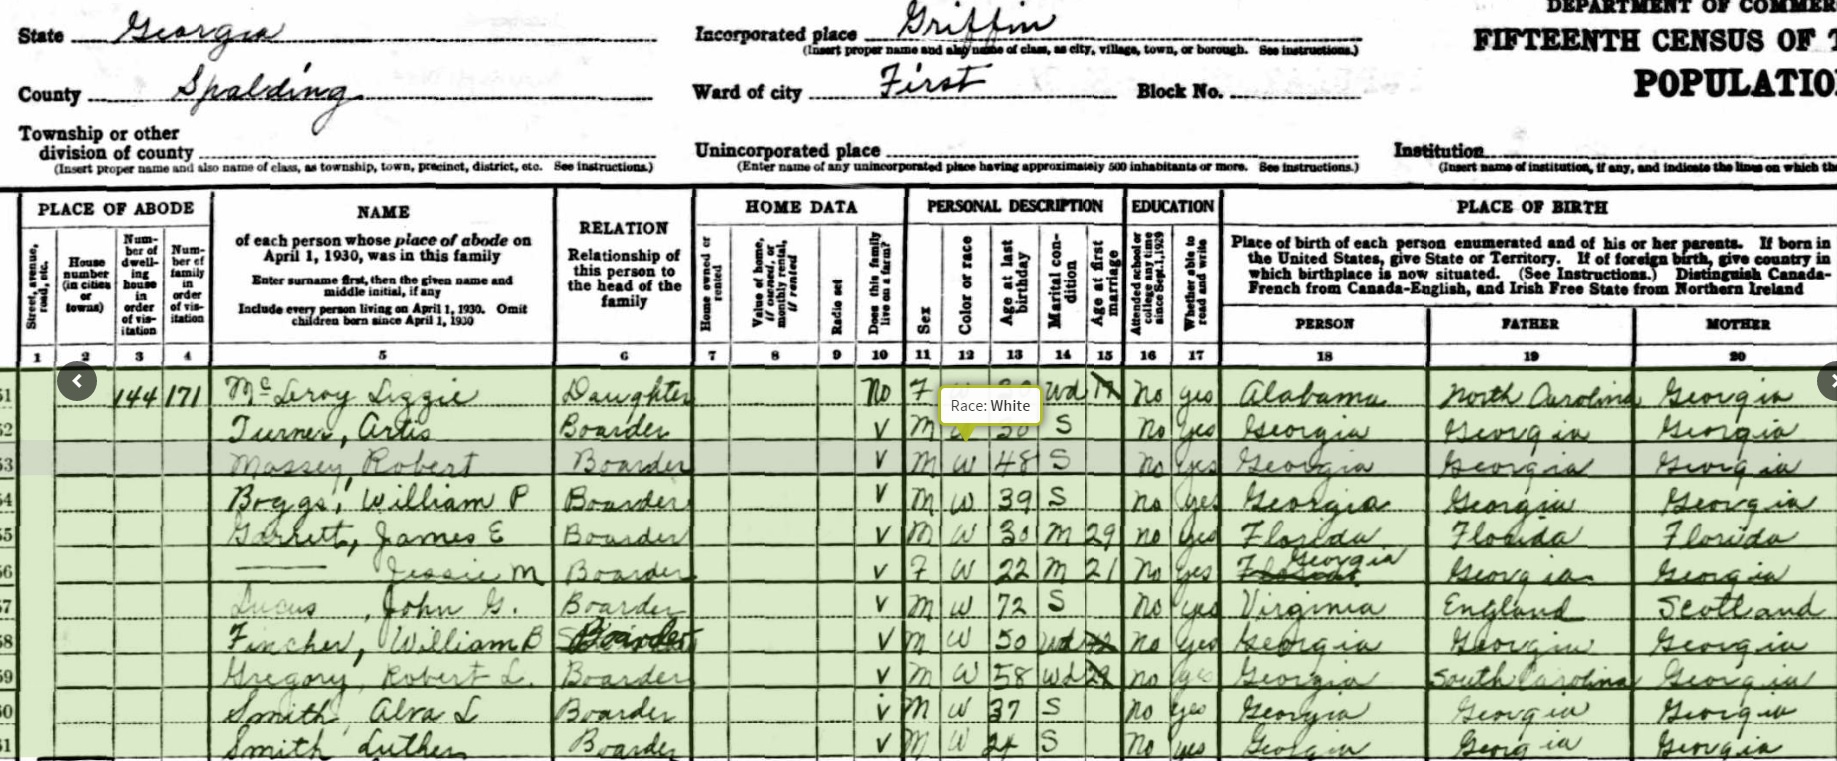 DEPARTMENT OF COMMER
State Georgia
Incorporated place Griffin
(Insert proper name and also name of class, as city, village, town, or borough. See instructions.)
FIFTEENTH CENSUS OF T
County Spalding
Ward of city First Block No.
POPULATIO
Township or other
division of county
(Insert proper name and also name of class, as township, town, precinct, district, etc. See instructions.)
Unincorporated place
(Enter name of any unincorporated place having approximately 500 inhabitants or more. See instructions.)
Institution
(Insert name of institution, if any, and indicate the lines on which th
PLACE OF ABODE
Street, avenue, road, etc.
House number (in cities or towns)
Num-ber of dwell-ing house in order of vis-itation
Num-ber of family in order of vis-itation
NAME
of each person whose place of abode on
April 1, 1930, was in this family
Enter surname first, then the given name and
middle initial, if any
Include every person living on April 1, 1930. Omit
children born since April 1, 1930
RELATION
Relationship of
this person to
the head of the
family
HOME DATA
Home owned or rented
Value of home, if owned, or monthly rental, if rented
Radio set
Does this family live on a farm?
PERSONAL DESCRIPTION
Sex
Color or race
Age at last birthday
Marital con-dition
Age at first marriage
EDUCATION
Attended school or college any time since Sept. 1, 1929
Whether able to read and write
PLACE OF BIRTH
Place of birth of each person enumerated and of his or her parents. If born in
the United States, give State or Territory. If of foreign birth, give country in
which birthplace is now situated. (See Instructions.) Distinguish Canada-
French from Canada-English, and Irish Free State from Northern Ireland
PERSON FATHER MOTHER
1 2 3 4 5 6 7 8 9 10 11 12 13 14 15 16 17 18 19 20
51 144 171 McLeroy Lizzie Daughter No F Wd No yes Alabama North Carolina Georgia
Race: White
52 Turner, Artis Boarder V M W 30 S No yes Georgia Georgia Georgia
53 Massey Robert Boarder V M W 48 S No yes Georgia Georgia Georgia
54 Boggs, William P Boarder V M W 39 S no yes Georgia Georgia Georgia
55 Garrett, James E Boarder V M W 30 M 29 no yes Florida Florida Florida
56 —— Jessie M Boarder V F W 22 M 21 No yes Georgia Georgia Georgia
57 Lucus, John G. Boarder V M W 72 S No yes Virginia England Scotland
58 Fincher, William B Boarder V M W 50 Wd No yes Georgia Georgia Georgia
59 Gregory, Robert L. Boarder V M W 58 Wd no yes Georgia South Carolina Georgia
60 Smith, Alva L Boarder V M W 37 S no yes Georgia Georgia Georgia
61 Smith Luther Boarder V M W 24 S No yes Georgia Georgia Georgia